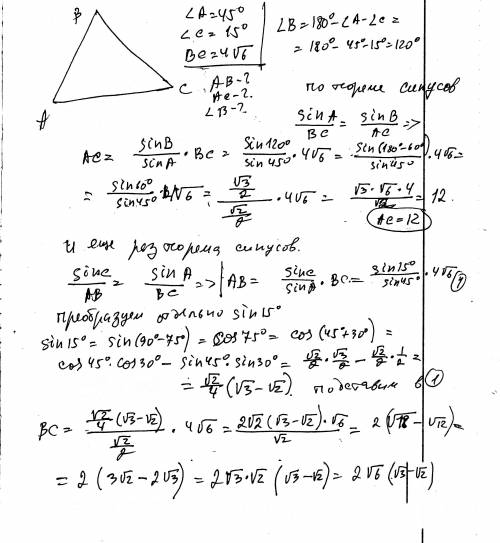 B
A
C
∠A=45°
∠C=15°
BC=4√6
AB-?
AC-?
∠B-?
∠B=180°-∠A-∠C=
=180°-45°-15°=120°
по теореме синусов
sinA/BC = sinB/AC =>
AC= sinB/sinA · BC = sin120°/sin45° · 4√6 = sin(180°-60°)/sin45° · 4√6=
= sin60°/sin45° · 4√6 = (√3/2)/(√2/2) · 4√6 = √3·√6·4/√2 = 12.
AC=12
И еще раз теорема синусов.
sinC/AB = sinA/BC => AB= sinC/sinA · BC= sin15°/sin45° · 4√6 (1)
преобразуем отдельно sin15°
sin15°= sin(90°-75°)= cos75°= cos(45°+30°)=
cos45°·cos30°- sin45°·sin30°= √2/2·√3/2 - √2/2·1/2=
= √2/4(√3-√2). подставим в (1)
BC= (√2/4(√3-√2))/(√2/2) · 4√6 = 2√2(√3-√2)·√6/√2 = 2(√18-√12)=
= 2(3√2-2√3)= 2√3·√2(√3-√2)= 2√6(√3-√2)